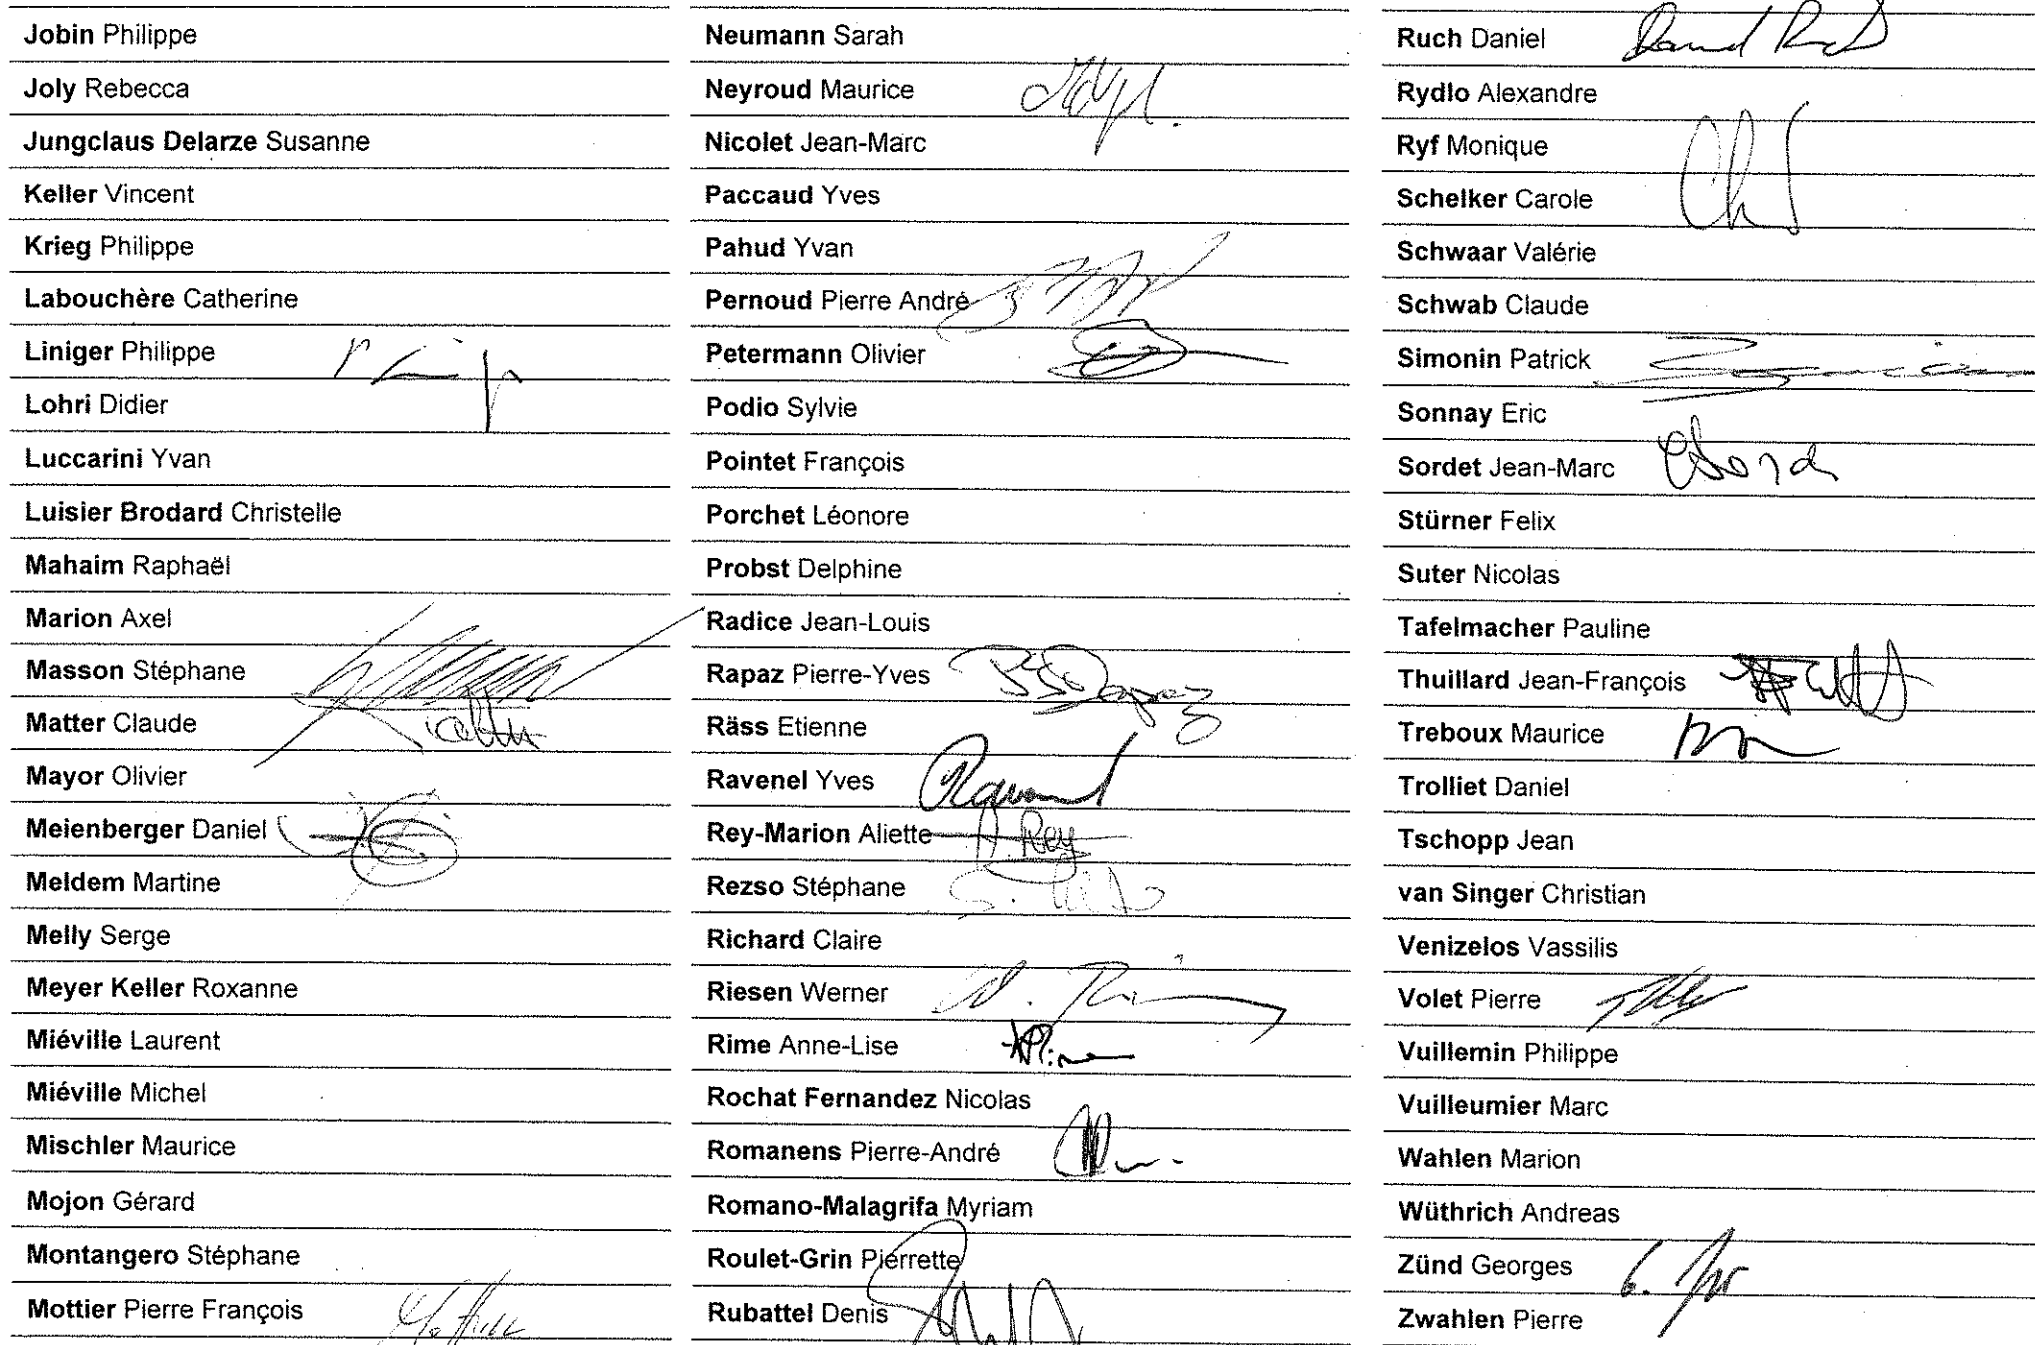 Jobin Philippe
Joly Rebecca
Jungclaus Delarze Susanne
Keller Vincent
Krieg Philippe
Labouchère Catherine
Liniger Philippe
Lohri Didier
Luccarini Yvan
Luisier Brodard Christelle
Mahaim Raphaël
Marion Axel
Masson Stéphane
Matter Claude
Mayor Olivier
Meienberger Daniel
Meldem Martine
Melly Serge
Meyer Keller Roxanne
Miéville Laurent
Miéville Michel
Mischler Maurice
Mojon Gérard
Montangero Stéphane
Mottier Pierre François
Neumann Sarah
Neyroud Maurice
Nicolet Jean-Marc
Paccaud Yves
Pahud Yvan
Pernoud Pierre André
Petermann Olivier
Podio Sylvie
Pointet François
Porchet Léonore
Probst Delphine
Radice Jean-Louis
Rapaz Pierre-Yves
Räss Etienne
Ravenel Yves
Rey-Marion Aliette A. Rey
Rezso Stéphane
Richard Claire
Riesen Werner
Rime Anne-Lise
Rochat Fernandez Nicolas
Romanens Pierre-André
Romano-Malagrifa Myriam
Roulet-Grin Pierrette
Rubattel Denis
Ruch Daniel
Rydlo Alexandre
Ryf Monique
Schelker Carole
Schwaar Valérie
Schwab Claude
Simonin Patrick
Sonnay Eric
Sordet Jean-Marc
Stürner Felix
Suter Nicolas
Tafelmacher Pauline
Thuillard Jean-François
Treboux Maurice
Trolliet Daniel
Tschopp Jean
van Singer Christian
Venizelos Vassilis
Volet Pierre
Vuillemin Philippe
Vuilleumier Marc
Wahlen Marion
Wüthrich Andreas
Zünd Georges
Zwahlen Pierre